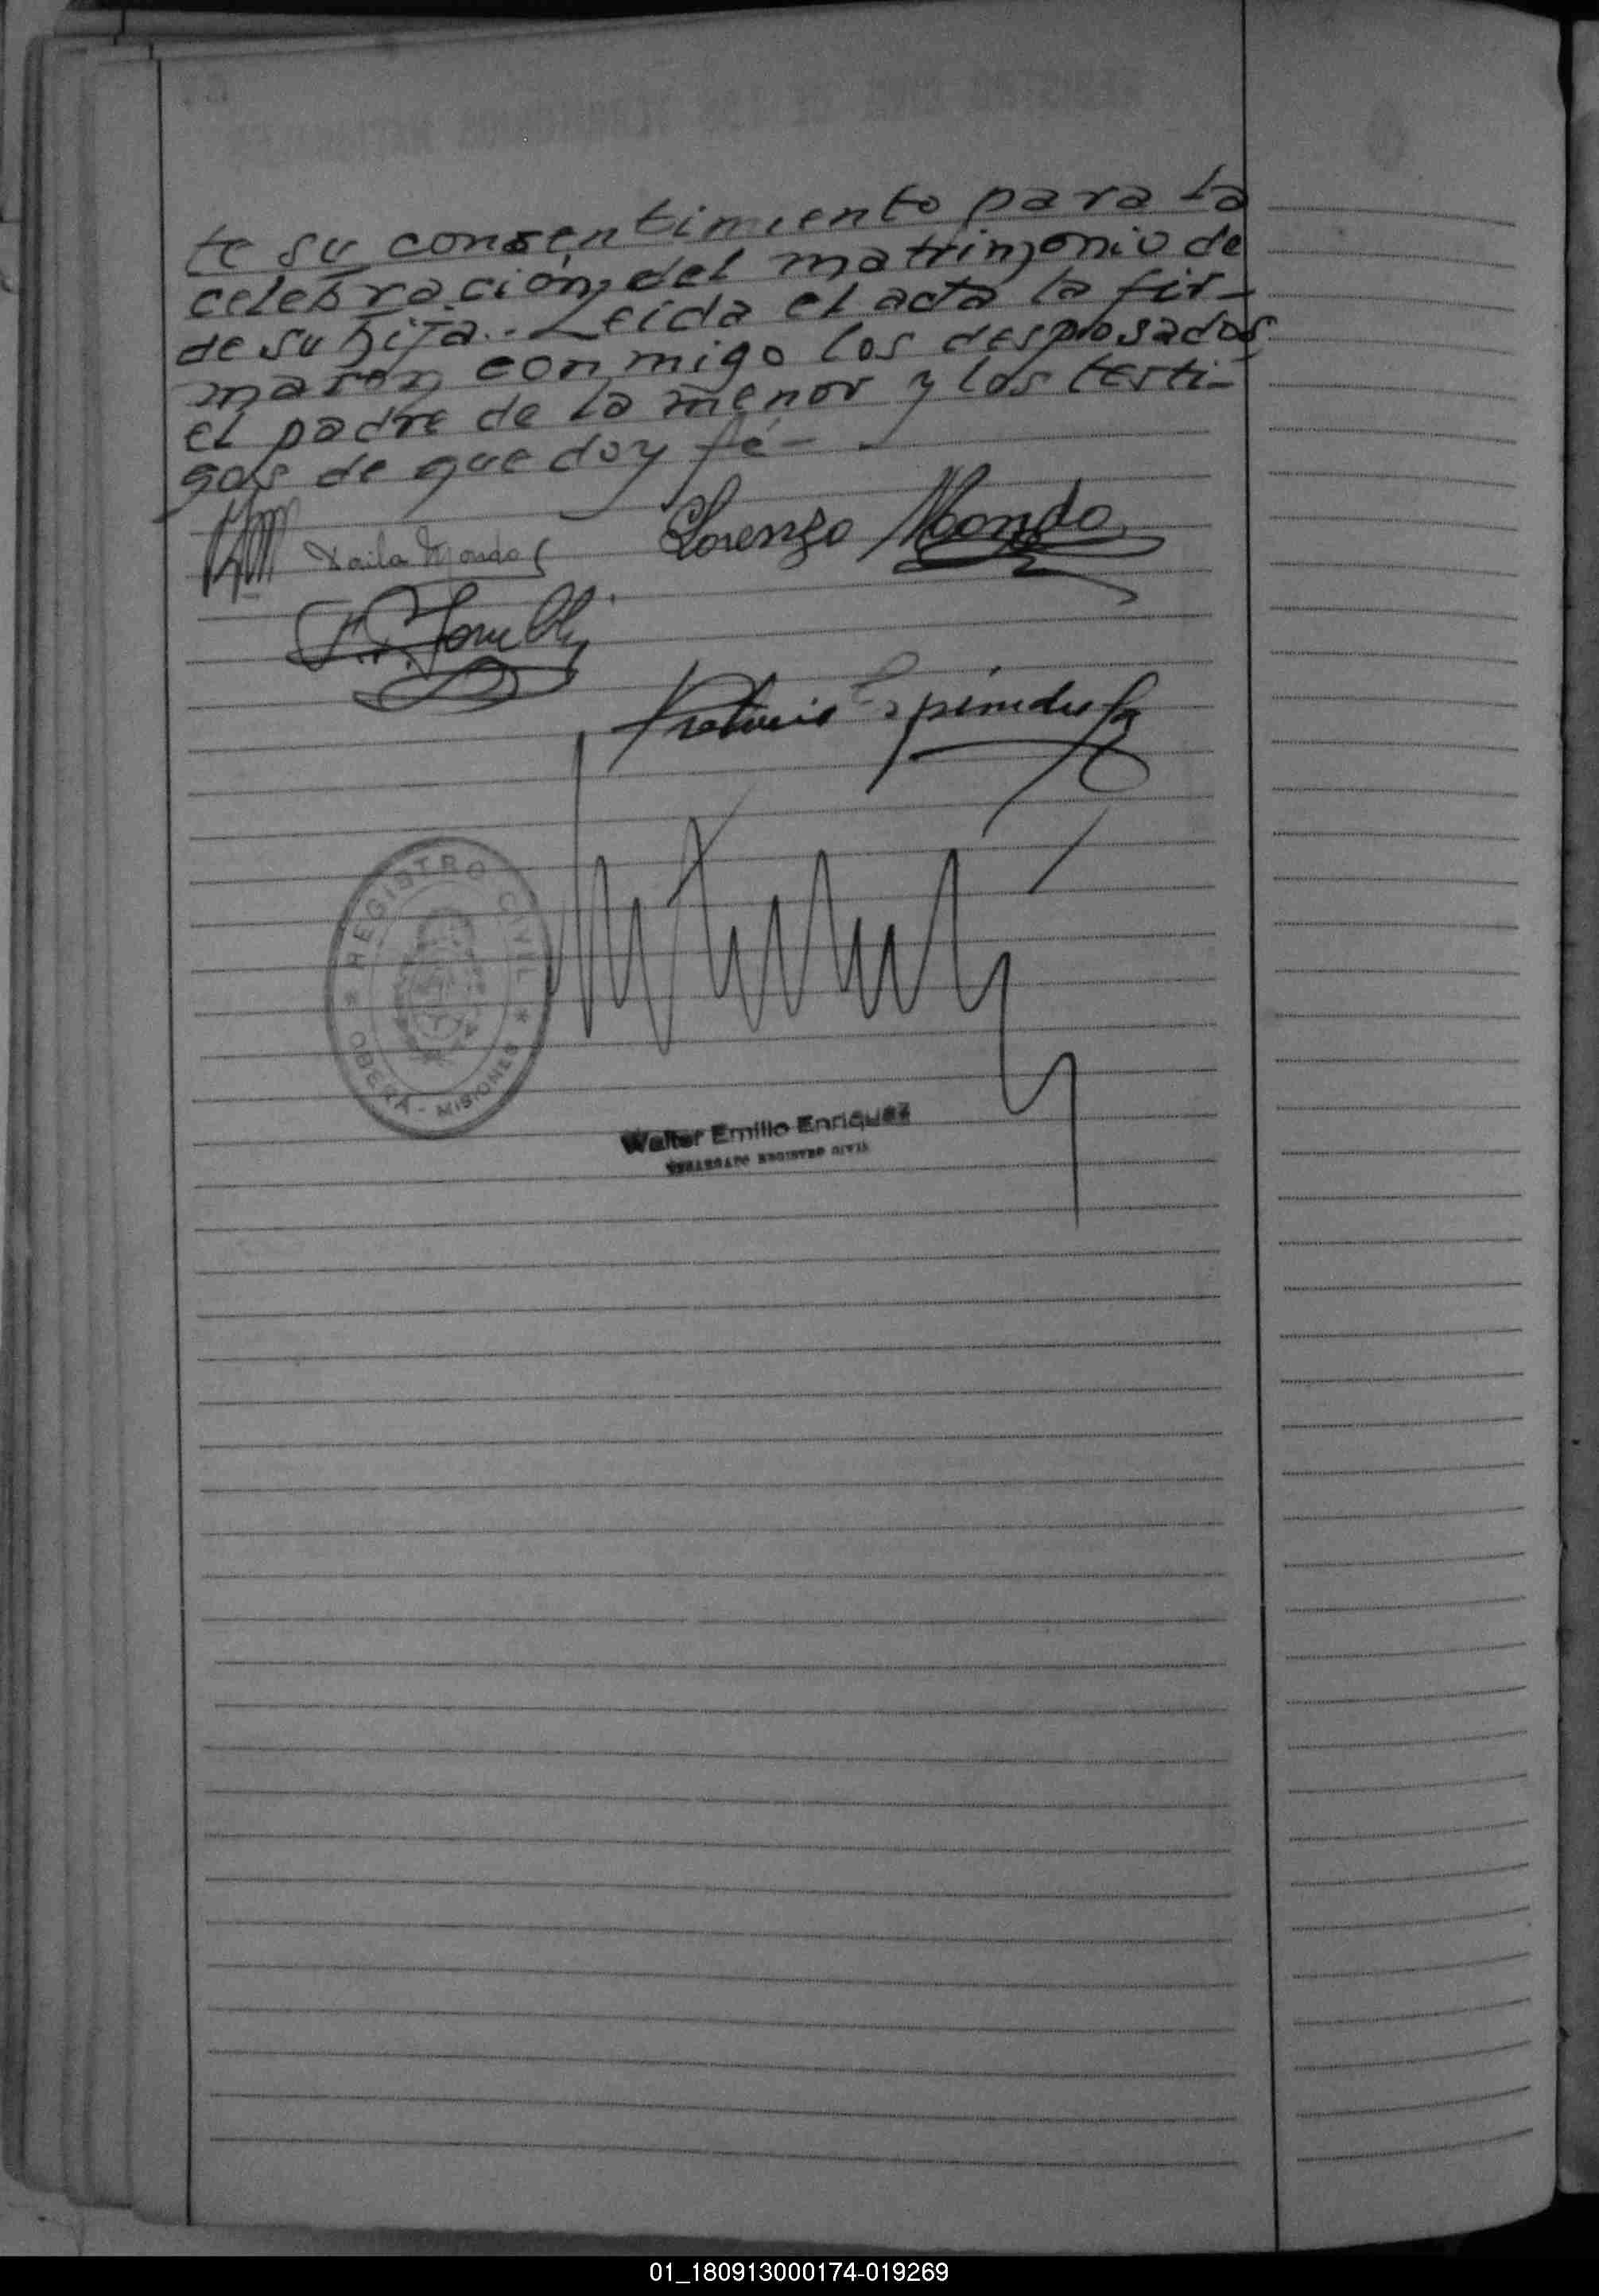 te su consentimiento para la
celebración del matrimonio de
de su hija.. Leida el acta la fir-
maron conmigo los desposados
el padre de la menor y los testi-
gos de que doy fé -
Mondo
Lorenzo Mondo
REGISTRO CIVIL
OBERA - MISIONES
Walter Emilio Enriquez
REGISTRO CIVIL
01_180913000174-019269